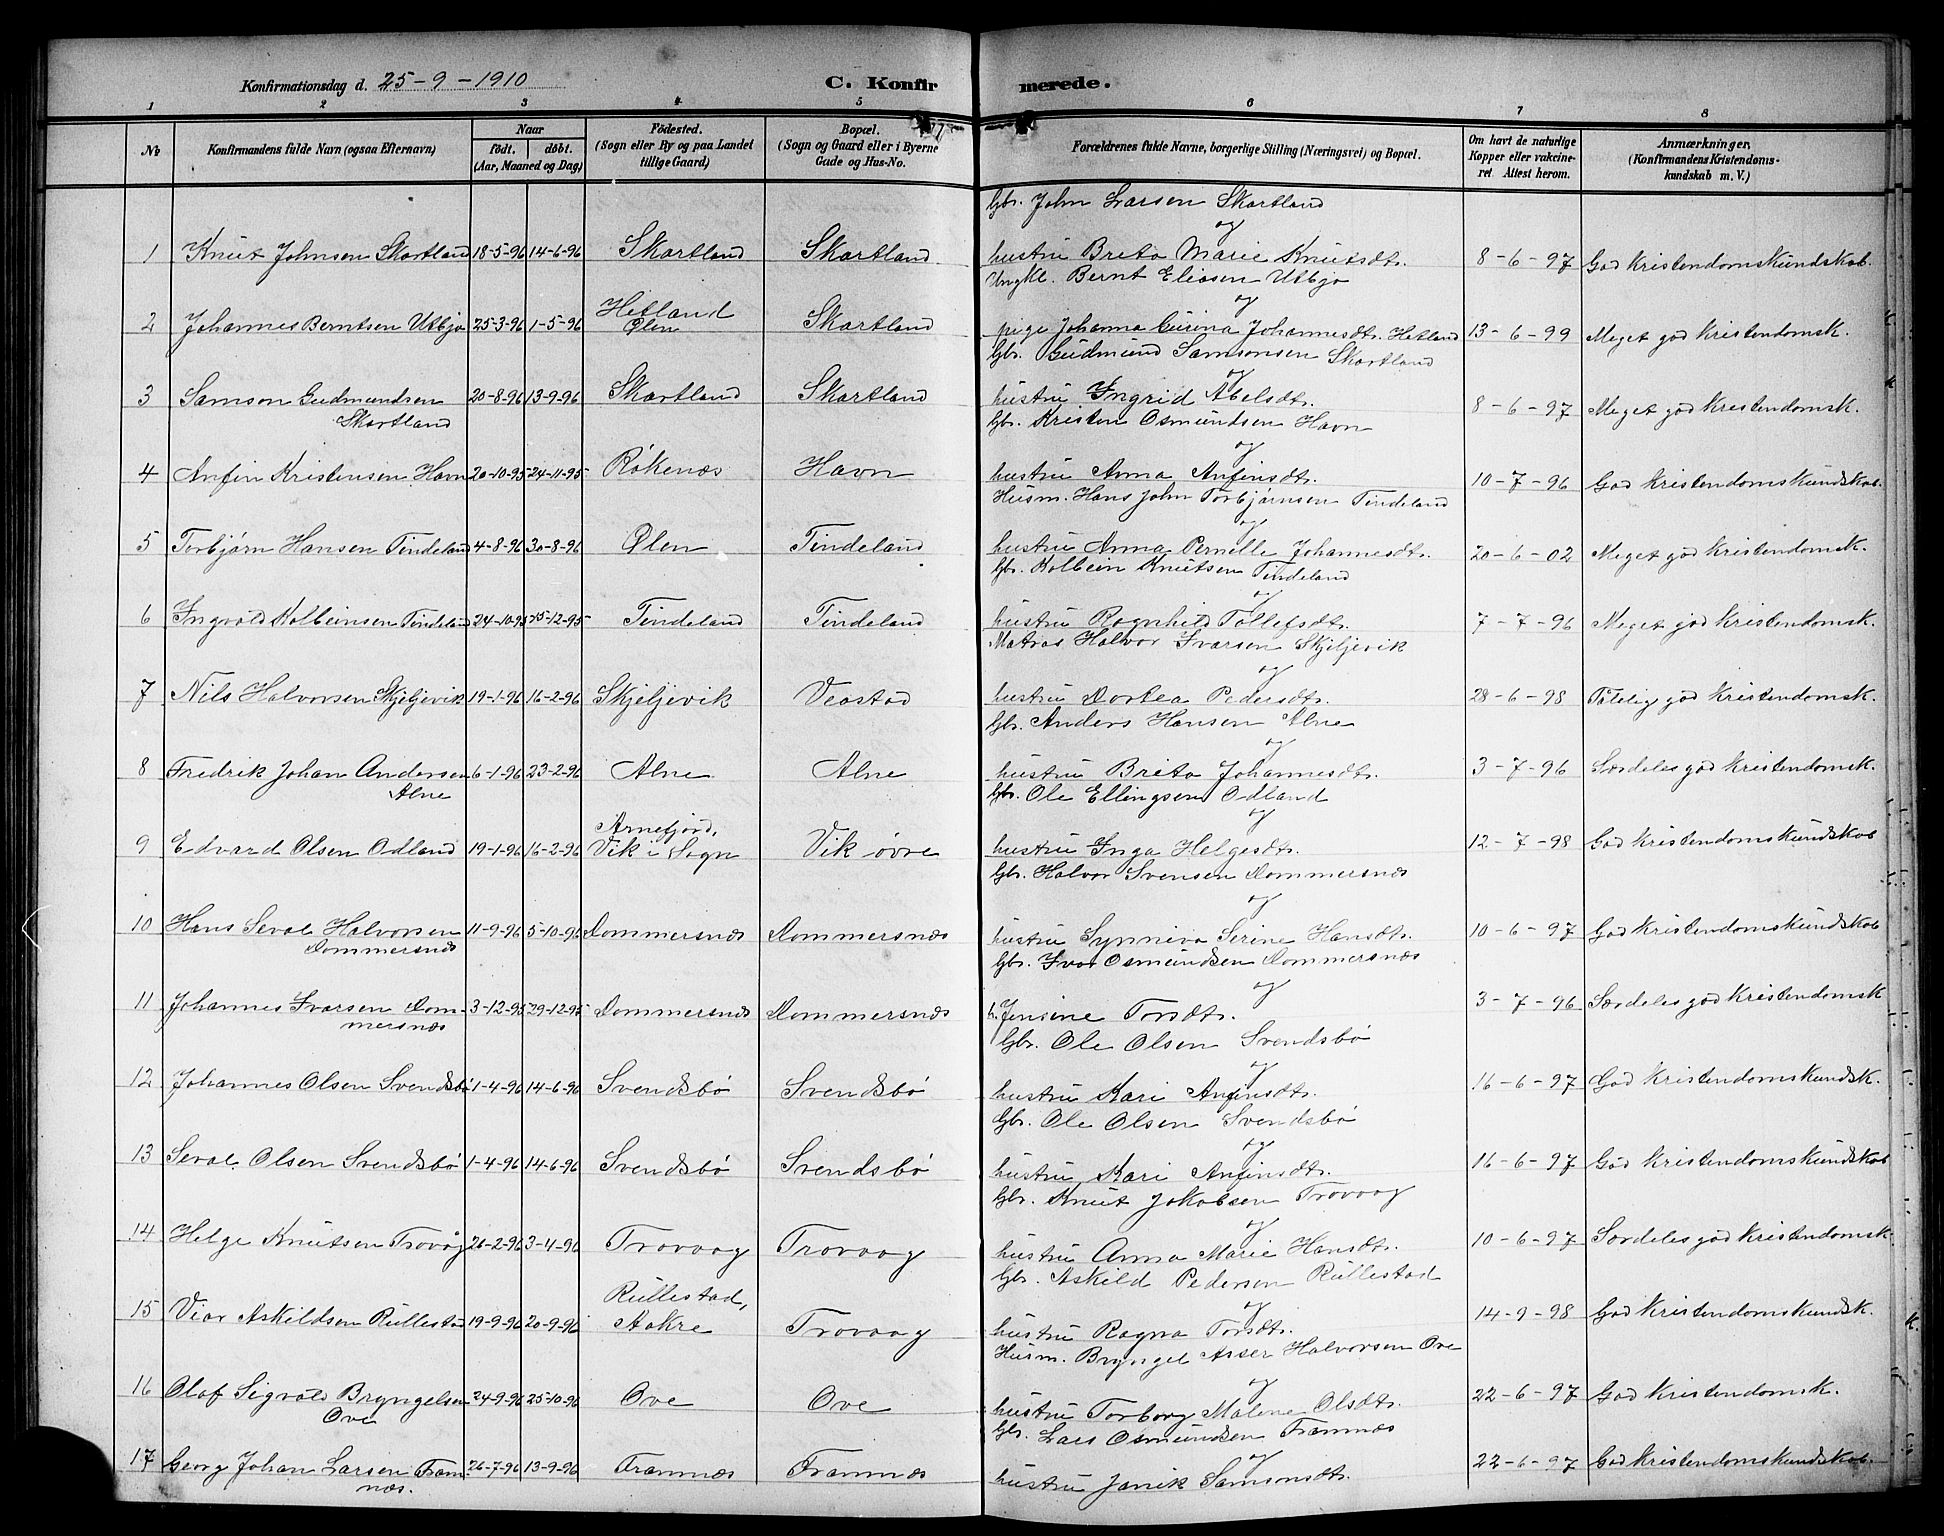 Konfirmationsdag d. 25-9-1910 C. Konfirmerede.
1 2 3 4 5 6 7 8
No Konfirmandens fulde Navn (ogsaa Efternavn) Naar født. døbt. (Aar, Maaned og Dag) Fødested. (Sogn eller By og paa Landet tillige Gaard) Bopæl. (Sogn og Gaard eller i Byerne Gade og Hus-No. Forældrenes fulde Navne, borgerlige Stilling (Næringsvei) og Bopæl. Om havt de naturlige Kopper eller vakcineret. Attest herom. Anmærkninger. (Konfirmandens Kristendomskundskab m. V.)
Gbr. John Larsen Skartland
og
1 Knut Johnsen Skartland 18-5-96 14-6-96 Skartland Skartland hustru Brita Marie Knutsdtr. 8-6-97 God Kristendomskundskab.
Ungkl. Bernt Eliasen Utbjo
og
2 Johannes Berntsen Utbjo 25-3-96 1-5-96 Hetland Ølen Skartland pige Johanna Gurina Johannesdtr. Hetland 13-6-99 Meget god Kristendomsk.
Gbr. Gudmund Samsonsen Skartland
og
3 Samson Gudmundsen Skartland 20-8-96 13-9-96 Skartland Skartland hustru Ingrid Abelsdtr. 8-6-97 Meget god Kristendomsk.
Gbr. Kristen Osmundsen Havn
og
4 Anfin Kristensen Havn 20-10-95 24-11-95 Røkenæs Havn hustru Anna Anfinsdtr. 10-7-96 God Kristendomskundskab.
Husm. Hans John Torbjørnsen Tindeland
og
5 Torbjørn Hansen Tindeland 4-8-96 30-8-96 Ølen Tindeland hustru Anna Pernelle Johannesdtr. 20-6-02 Meget god Kristendomsk.
Gbr. Kolbein Knutsen Tindeland
og
6 Ingvald Kolbeinsen Tindeland 24-10-95 25-12-95 Tindeland Tindeland hustru Ragnhild Tollefsdtr. 7-7-96 Meget god Kristendomsk.
Matros Halvor Ivarsen Skjeljevik
og
7 Nils Halvorsen Skjeljevik 19-1-96 16-2-96 Skjeljevik Veastad hustru Dortea Pedersdtr. 28-6-98 Tålelig god Kristendomsk.
Gbr. Anders Hansen Alne
og
8 Fredrik Johan Andersen Alne 6-1-96 23-2-96 Alne Alne hustru Brita Johannesdtr. 3-7-96 Særdeles god Kristendomsk.
Gbr. Ole Ellingsen Odland
og
9 Edvard Olsen Odland 19-1-96 16-2-96 Arnefjord, Vik i Sogn Vik øvre hustru Inga Helgesdtr. 12-7-98 God Kristendomskundskab
Gbr. Halvor Svensen Dommersnæs
og
10 Hans Seval Halvorsen Dommersnæs 11-9-96 5-10-96 Dommersnæs Dommersnæs hustru Synneva Serine Hansdtr. 10-6-97 God Kristendomskundskab
Gbr. Ivar Osmundsen Dommersnæs
og
11 Johannes Ivarsen Dommersnæs 3-12-95 29-12-95 Dommersnæs Dommersnæs h. Jensine Torsdtr. 3-7-96 Særdeles god Kristendomsk
Gbr. Ole Olsen Svendsbø
og
12 Johannes Olsen Svendsbø 1-4-96 14-6-96 Svendsbø Svendsbø hustru Kari Anfinsdtr. 16-6-97 God Kristendomskundsk.
Gbr. Ole Olsen Svendsbø
og
13 Seval Olsen Svendsbø 1-4-96 14-6-96 Svendsbø Svendsbø hustru Kari Anfinsdtr. 16-6-97 God Kristendomskundskab
Gbr. Knut Jakobsen Trovaag
og
14 Helge Knutsen Trovåg 26-2-96 3-4-96 Trovaag Trovaag hustru Anna Marie Hansdtr. 10-6-97 Særdeles god Kristendomsk.
Gbr. Askild Pedersen Rullestad
og
15 Viar Askildsen Rullestad 19-9-96 20-9-96 Rullestad, Aakre Trovaag hustru Ragna Torsdtr. 14-9-98 God Kristendomskundsk.
Husm. Bryngel Halvorsen Ove
og
16 Olaf Sigvald Bryngelsen Ove 24-9-96 25-10-96 Ove Ove hustru Torborg Malene Olsdtr. 22-6-97 God Kristendomsk.
Gbr. Lars Osmundsen Framnæs
og
17 Georg Johan Larsen Framnæs. 26-7-96 13-9-96 Framnæs Framnæs hustru Janik Samsonsdtr. 22-6-97 God Kristendomskundskab.